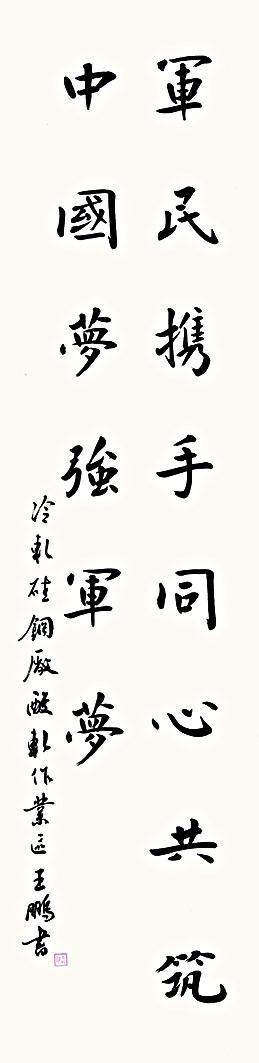 軍民携手同心共筑
中國夢強軍夢
冷軋硅鋼廠酸軋作業區王鵬書